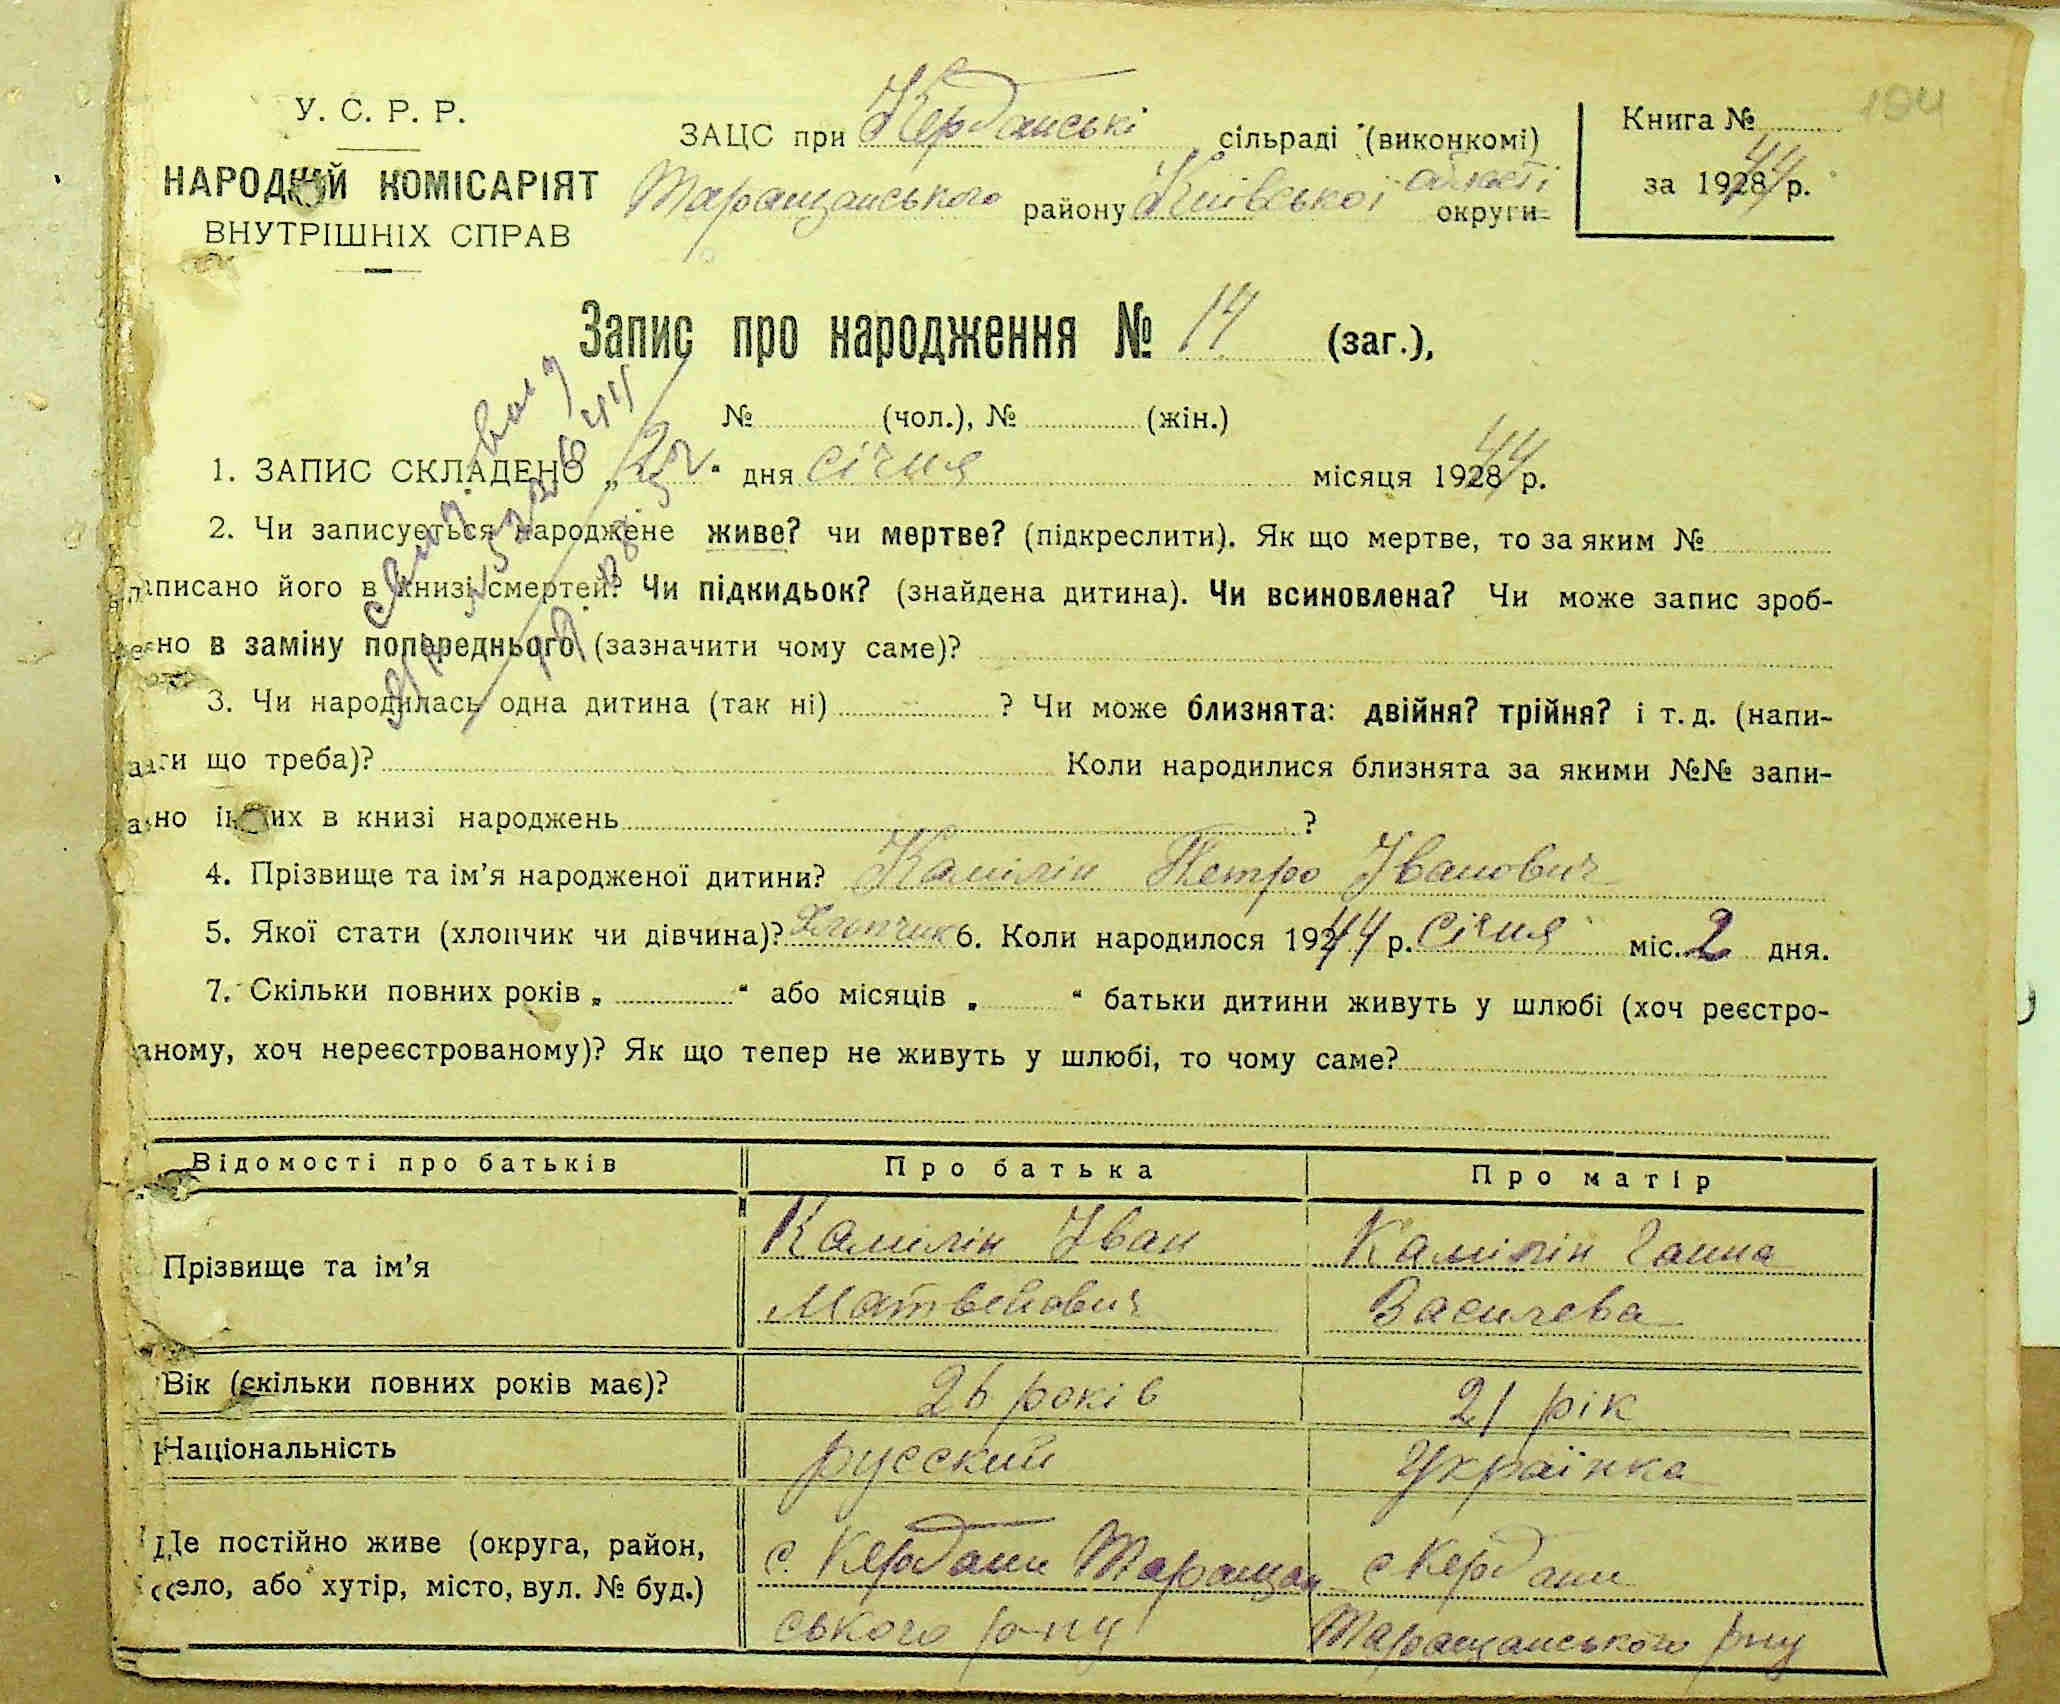 104
У. С. Р. Р.
НАРОДНИЙ КОМІСАРІЯТ
ВНУТРІШНІХ СПРАВ
ЗАЦС при Керданські сільраді (виконкомі)
Таращанського району Київської області округи
Книга №
за 1944 р.
Запис про народження № 14 (заг.),
№ (чол.), № (жін.)
1. ЗАПИС СКЛАДЕНО „ “ дня січня місяця 1944 р.
2. Чи записується народжене живе? чи мертве? (підкреслити). Як що мертве, то за яким №
записано його в книзі смертей? Чи підкидьок? (знайдена дитина). Чи всиновлена? Чи може запис зроб-
но в заміну попереднього (зазначити чому саме)?
3. Чи народилась одна дитина (так ні) ? Чи може близнята: двійня? трійня? і т. д. (напи-
ати що треба)? Коли народилися близнята за якими №№ запи-
ано інших в книзі народжень ?
4. Прізвище та ім’я народженої дитини? Камілін Петро Іванович
5. Якої стати (хлопчик чи дівчина)? Хлопчик 6. Коли народилося 1944 р. січня міс. 2 дня.
7. Скільки повних років „ “ або місяців „ “ батьки дитини живуть у шлюбі (хоч реєстро-
аному, хоч нереєстрованому)? Як що тепер не живуть у шлюбі, то чому саме?
Відомості про батьків Про батька Про матір
Прізвище та ім’я
Камілін Іван Камілін Ганна
Матвейович Василева
Вік (скільки повних років має)? 26 років 21 рік
Національність русский Українка
Де постійно живе (округа, район,
село, або хутір, місто, вул. № буд.)
с. Кердани Таращан с Кердани
ського р-ну Таращанського рну